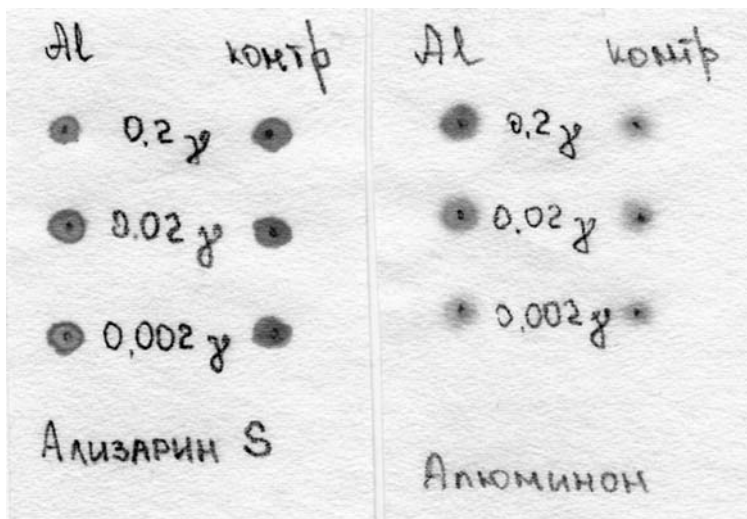 Al контр
0,2 γ
0.02 γ
0,002 γ
Ализарин S
Al контр
0,2 γ
0.02 γ
0,002 γ
Алюминон